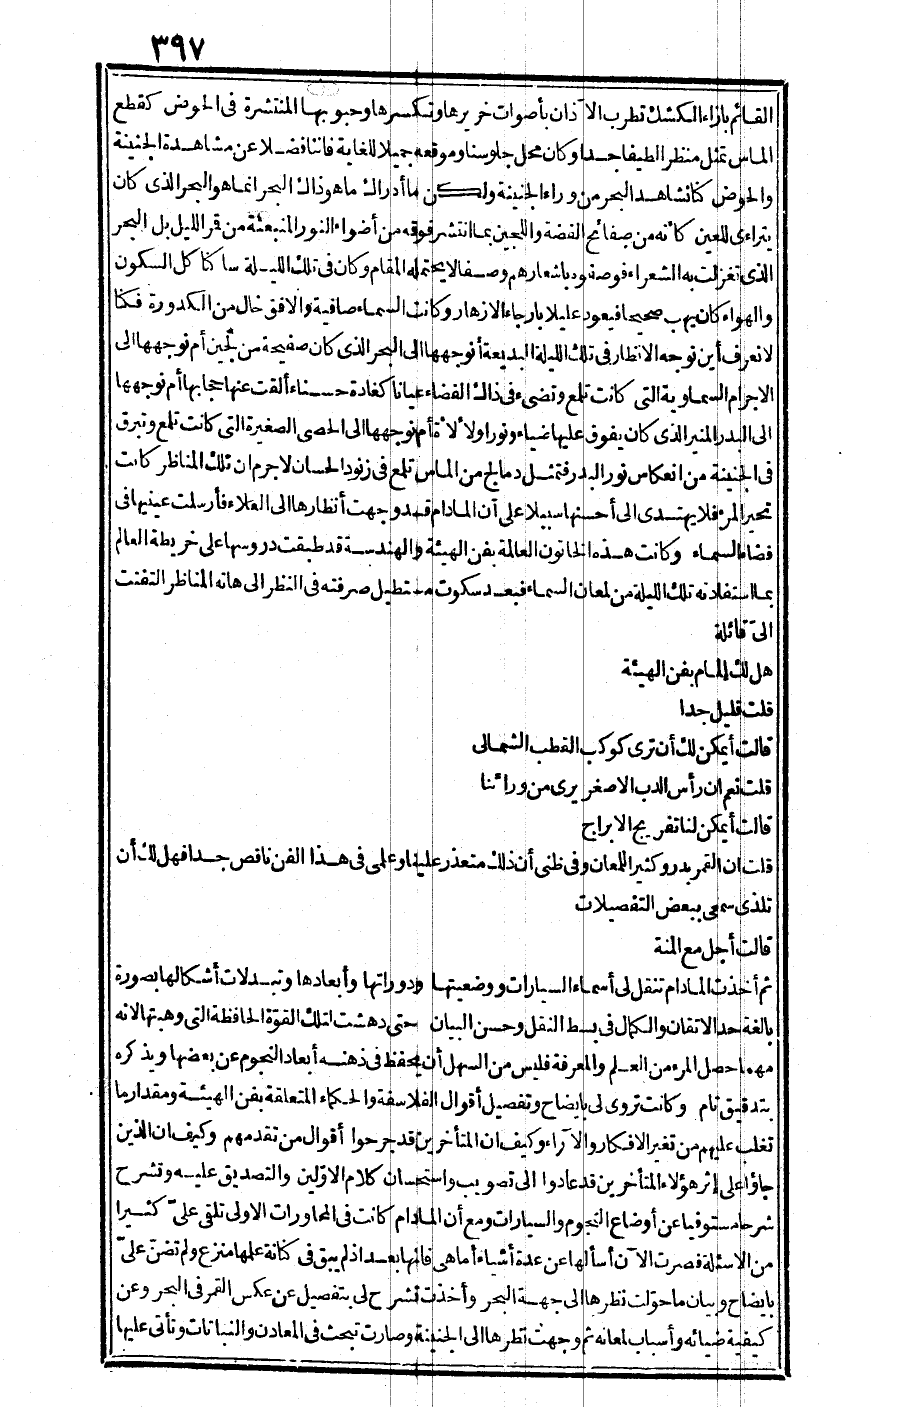 ٣٩٧
القائم بازاء الكشك تطرب الآذان بأصوات خريرها وتكسرها وحبوبها المنتشرة فى الحوض كقطع
الماس تمثل منظرا لطيفا جدا وكان محل جلوسنا وموقعه جميلا للغاية فاننا فضلا عن مشاهدة الجنينة
والحوض كنا نشاهد البحر من وراء الجنينة ولكن ما أدراك ما هو ذاك البحر انما هو البحر الذى كان
يتراءى للعين كأنه من صفائح الفضة واللجين بما انتشر فوقه من أضواء النور المنبعثة من قمر الليل بل البحر
الذى تغزلت به الشعراء فوصفوه باشعارهم وصفا لا يحتمله المقام وكان فى تلك الليلة ساكنا كل السكون
والهواء كان يهب صحيحا فيعود عليلا بارجاء الازهار وكانت السماء صافية والافق خال من الكدورة فكنا
لا نعرف أين نوجه الانظار فى تلك الليلة البديعة أنوجهها الى البحر الذى كان صفيحة من لجين أم نوجهها الى
الاجرام السماوية التى كانت تلمع وتضىء فى ذاك الفضاء عيانا كغادة حسناء ألقت عنها حجابها أم نوجهها
الى البدر المنير الذى كان يفوق عليها ضياء ونورا ولألأة أم نوجهها الى الحصى الصغيرة التى كانت تلمع وتبرق
فى الجنينة من انعكاس نور البدر فتمثل دمالج من الماس تلمع فى زنود الحسان لا جرم ان تلك المناظر كانت
تحير المرء فلا يهتدى الى أحسنها سبيلا على آن المادام قد وجهت أنظارها الى العلاء فأرسلت عينيها فى
فضاء السماء وكانت هذه الخاتون العالمة بفن الهيئة والهندسة قد طبقت دروسها على خريطة العالم
بما استفادته تلك الليلة من لمعان السماء فبعد سكوت مستطيل صرفته فى النظر الى هاته المناظر التفتت
الىّ قائلة
هل لك المام بفن الهيئة
قلت قليل جدا
قالت أيمكن لك أن ترى كوكب القطب الشمالى
قلت نعم ان رأس الدب الاصغر يرى من ورائنا
قالت أيمكن لنا تفريج الابراج
قلت ان القمر بدر وكثير اللمعان وفى ظنى أن ذلك متعذر علينا وعلمى فى هذا الفن ناقص جدا فهل لك أن
تلذى سمعى ببعض التفصيلات
قالت أجل مع المنة
ثم أخذت المادام تنقل لى أسماء السيارات ووضعيتها ودوراتها وأبعادها وتبدلات أشكالها بصورة
بالغة حد الاتقان والكمال فى بسط النقل وحسن البيان حتى دهشت لتلك القوة الحافظة التى وهبتها لانه
مهما حصل المرء من العلم والمعرفة فليس من السهل أن يحفظ فى ذهنه أبعاد النجوم عن بعضها ويذكره
بتدقيق تام وكانت تروى لى بايضاح وتفصيل أقوال الفلاسفة والحكماء المتعلقة بفن الهيئة ومقدار ما
تغلب عليهم من تغير الافكار والآراء وكيف ان المتأخرين قد جرحوا أقوال من تقدمهم وكيف ان الذين
جاؤا على إثر هؤلاء المتأخرين قد عادوا الى تصويب واستحسان كلام الاولين والتصديق عليه وتشرح
شرحا مستوفيا عن أوضاع النجوم والسيارات ومع أن المادام كانت فى المحاورات الاولى تلقى علىّ كثيرا
من الاسئلة فصرت الآن أسألها عن عدة أشياء أما هى فانها بعد اذ لم يبق فى كنانة علمها منزع ولم تضن علىّ
بايضاح وبيان ما حولت نظرها الى جهة البحر وأخذت تشرح لى بتفصيل عن عكس القمر فى البحر وعن
كيفية ضيائه وأسباب لمعانه ثم وجهت نظرها الى الجنينة وصارت تبحث فى المعادن والنباتات وتأتى عليها